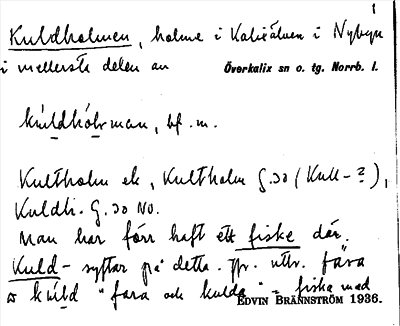 1
Kuldholmen, holme i Kalixälven i Nybyn
i mellersta delen av Överkalix sn o. tg. Norrb. l.
kúldhòlvman, bf. m.
Kultholm ek, Kultholm G.30 (Kull-?),
Kuldh. G.30 No.
Man har förr haft ett fiske där.
Kuld- syftar på detta. Jfr. uttr. fara
kúld "fara och kulda" = fiska med
EDVIN BRÄNNSTRÖM 1936.